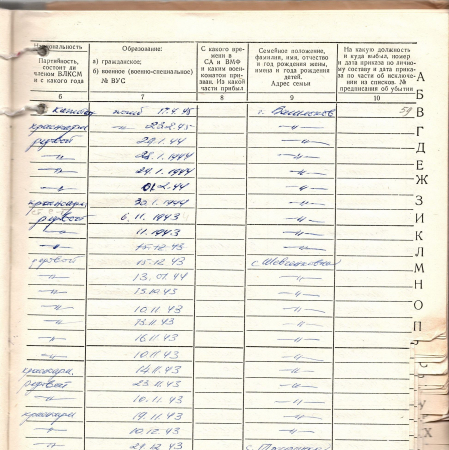 Национальность
Партийность, состоит ли членом ВЛКСМ и с какого года
Образование:
а) гражданское;
б) военное (военно-специальное) № ВУС
С какого времени в СА и ВМФ и каким военкоматом призван. Из какой части прибыл
Семейное положение, фамилия, имя, отчество и год рождения жены, имена и года рождения детей.
Адрес семьи
На какую должность и куда выбыл, номер и дата приказа по личному составу и дата приказа по части об исключении из списков. № предписания об убытии
6 7 8 9 10
погиб 17.4.45 59
-"- 25.2.45 -"-
рядовой 29.1.44 -"-
-"- 28.1.1944 -"-
-"- 29.1.1944 -"-
-"- 01.2.44 -"-
30.1.1944 -"-
рядовой 6.11.1943 -"-
-"- 11.1943 -"-
-"- 15.12.43 -"-
рядовой 15.12.43
-"- 13.01.44 -"-
-"- 15.10.43 -"-
-"- 10.11.43 -"-
-"- 13.11.43 -"-
-"- 16.11.43 -"-
-"- 10.11.43 -"-
14.11.43 -"-
рядовой 23.11.43 -"-
-"- 10.11.43 -"-
19.11.43 -"-
-"- 10.12.43 -"-
-"- 29.12.43
А
Б
В
Г
Д
Е
Ж
З
И
К
Л
М
Н
О
П
У
Х